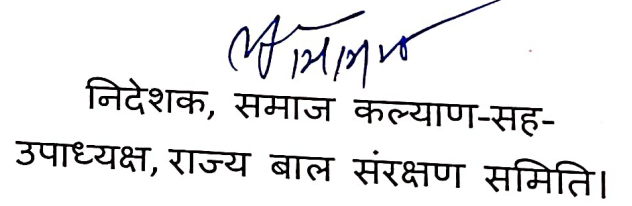 निदेशक, समाज कल्याण-सह-
उपाध्यक्ष, राज्य बाल संरक्षण समिति।